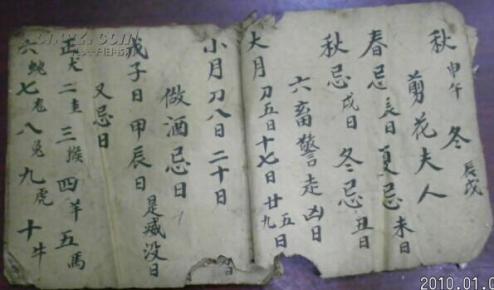 秋申午 冬辰戌
剪花夫人
春忌辰日夏忌未日
秋忌戌日冬忌丑日
六畜警走凶日
大月刀五日十七日廿五九日
小月刀八日二十日
做酒忌日
戊子日甲辰日是藏没日
又忌日
正犬二 三猴四羊五馬
六 七 八兔九虎十牛
2010.01.0